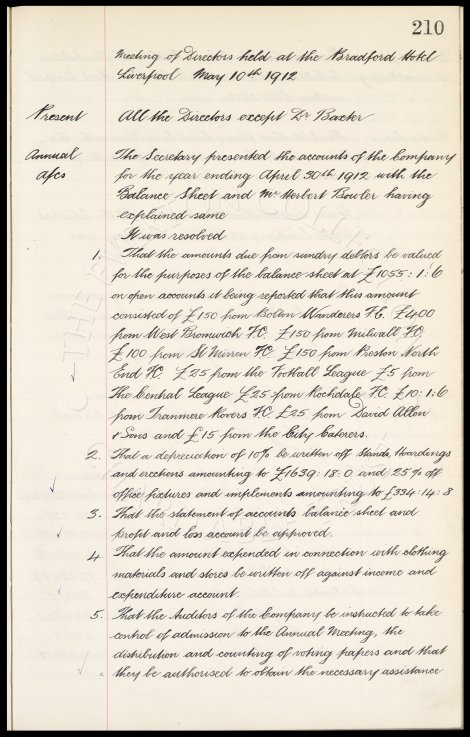 210
Meeting of Directors held at the Bradford Hotel
Liverpool May 10th 1912
Present All the Directors except Dr Baxter
Annual The Secretary presented the accounts of the Company
a/cs for the year ending April 30th 1912 with the
Balance Sheet and Mr Herbert Bowler having
explained same
It was resolved
1. That the amounts due from sundry debtors be valued
for the purposes of the balance sheet at £1055: 1: 6
on open accounts it being reported that this amount
consisted of £150 from Bolton Wanderers F.C. £400
from West Bromwich F.C. £150 from Milwall F.C.
£100 from St Mirren F.C. £150 from Preston North
End F.C. £25 from the Football League £5 from
The Central League £25 from Rochdale F.C. £10: 1: 6
from Tranmere Rovers F.C. £25 from David Allen
& Sons and £15 from the City Caterers.
2. That a depreciation of 10% be written off Stands, Hoardings
and erections amounting to £1639: 18: 0 and 25% off
office fixtures and implements amounting to £334: 14: 8
3. That the statement of accounts balance sheet and
profit and loss account be approved.
4. That the amount expended in connection with clothing
materials and stores be written off against income and
expenditure account.
5. That the Auditors of the Company be instructed to take
control of admission to the Annual Meeting, the
distribution and counting of voting papers and that
they be authorised to obtain the necessary assistance